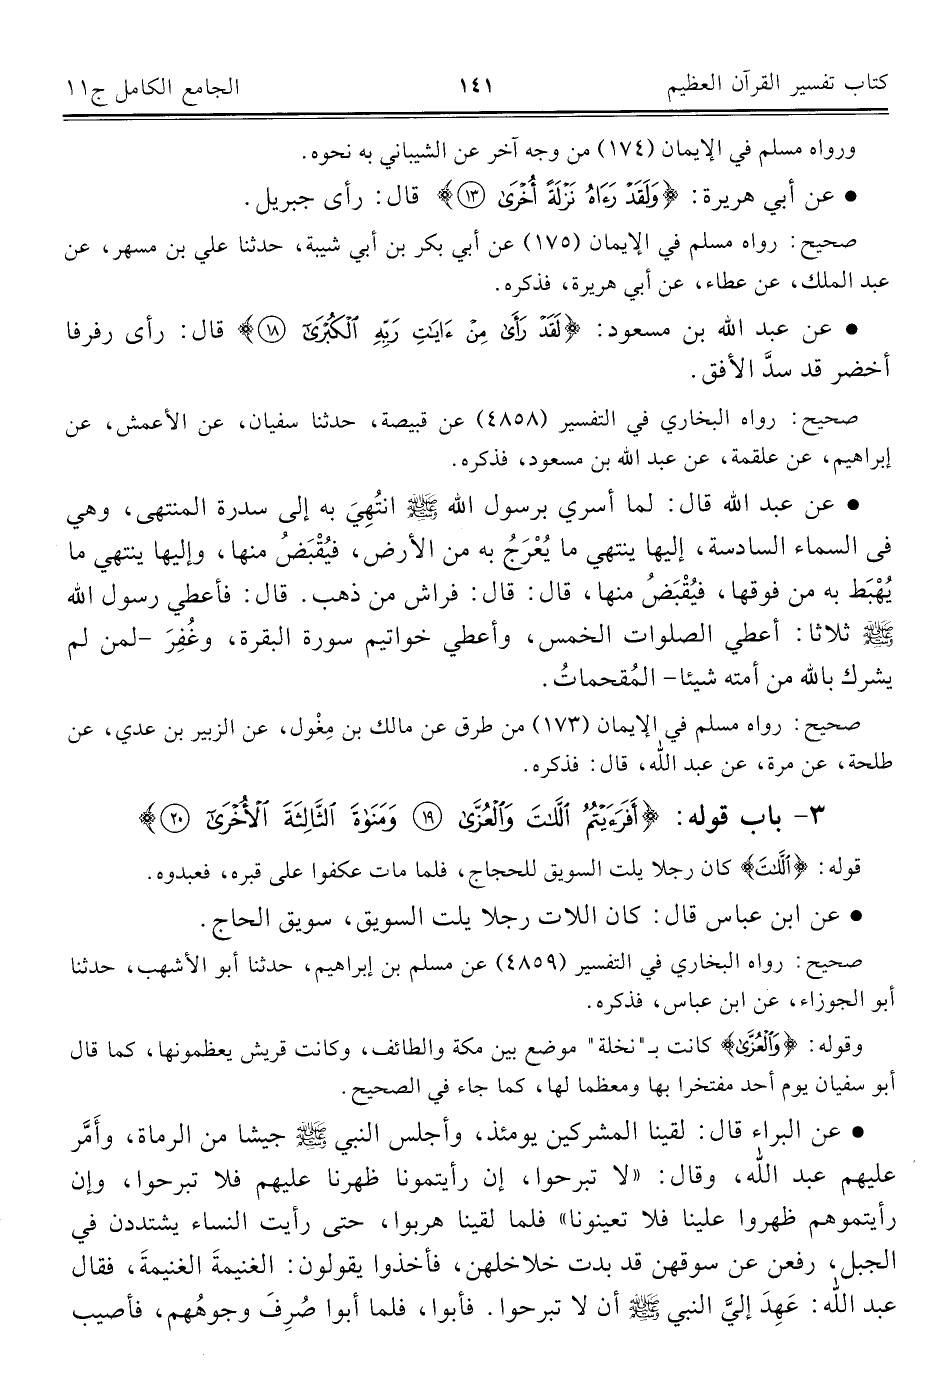 كتاب تفسير القرآن العظيم ١٤١ الجامع الكامل ج١١
ورواه مسلم في الإيمان (١٧٤) من وجه آخر عن الشيباني به نحوه.
• عن أبي هريرة: ﴿وَلَقَدۡ رَءَاهُ نَزۡلَةً أُخۡرَىٰ ١٣﴾ قال: رأى جبريل.
صحيح: رواه مسلم في الإيمان (١٧٥) عن أبي بكر بن أبي شيبة، حدثنا علي بن مسهر، عن
عبد الملك، عن عطاء، عن أبي هريرة، فذكره.
• عن عبد الله بن مسعود: ﴿لَقَدۡ رَأَىٰ مِنۡ ءَايَٰتِ رَبِّهِ ٱلۡكُبۡرَىٰٓ ١٨﴾ قال: رأى رفرفا
أخضر قد سدَّ الأفق.
صحيح: رواه البخاري في التفسير (٤٨٥٨) عن قبيصة، حدثنا سفيان، عن الأعمش، عن
إبراهيم، عن علقمة، عن عبد الله بن مسعود، فذكره.
• عن عبد الله قال: لما أسري برسول الله ﷺ انتُهِيَ به إلى سدرة المنتهى، وهي
فى السماء السادسة، إليها ينتهي ما يُعْرَجُ به من الأرض، فيُقْبَضُ منها، وإليها ينتهي ما
يُهْبَط به من فوقها، فيُقْبَضُ منها، قال: قال: فراش من ذهب. قال: فأعطي رسول الله
ﷺ ثلاثا: أعطي الصلوات الخمس، وأعطي خواتيم سورة البقرة، وغُفِرَ -لمن لم
يشرك بالله من أمته شيئا- المُقحماتُ.
صحيح: رواه مسلم في الإيمان (١٧٣) من طرق عن مالك بن مِغْول، عن الزبير بن عدي، عن
طلحة، عن مرة، عن عبد الله، قال: فذكره.
٣- باب قوله: ﴿أَفَرَءَيۡتُمُ ٱللَّٰتَ وَٱلۡعُزَّىٰ ١٩ وَمَنَوٰةَ ٱلثَّالِثَةَ ٱلۡأُخۡرَىٰٓ ٢٠﴾
قوله: ﴿ٱللَّٰتَ﴾ كان رجلا يلت السويق للحجاج، فلما مات عكفوا على قبره، فعبدوه.
• عن ابن عباس قال: كان اللات رجلا يلت السويق، سويق الحاج.
صحيح: رواه البخاري في التفسير (٤٨٥٩) عن مسلم بن إبراهيم، حدثنا أبو الأشهب، حدثنا
أبو الجوزاء، عن ابن عباس، فذكره.
وقوله: ﴿وَٱلۡعُزَّىٰ﴾ كانت بـ"نخلة" موضع بين مكة والطائف، وكانت قريش يعظمونها، كما قال
أبو سفيان يوم أحد مفتخرا بها ومعظما لها، كما جاء في الصحيح.
• عن البراء قال: لقينا المشركين يومئذ، وأجلس النبي ﷺ جيشا من الرماة، وأَمَّر
عليهم عبد الله، وقال: «لا تبرحوا، إن رأيتمونا ظهرنا عليهم فلا تبرحوا، وإن
رأيتموهم ظهروا علينا فلا تعينونا» فلما لقينا هربوا، حتى رأيت النساء يشتددن في
الجبل، رفعن عن سوقهن قد بدت خلاخلهن، فأخذوا يقولون: الغنيمةَ الغنيمةَ، فقال
عبد الله: عَهِدَ إليَّ النبي ﷺ أن لا تبرحوا. فأبوا، فلما أبوا صُرِفَ وجوهُهم، فأصيب